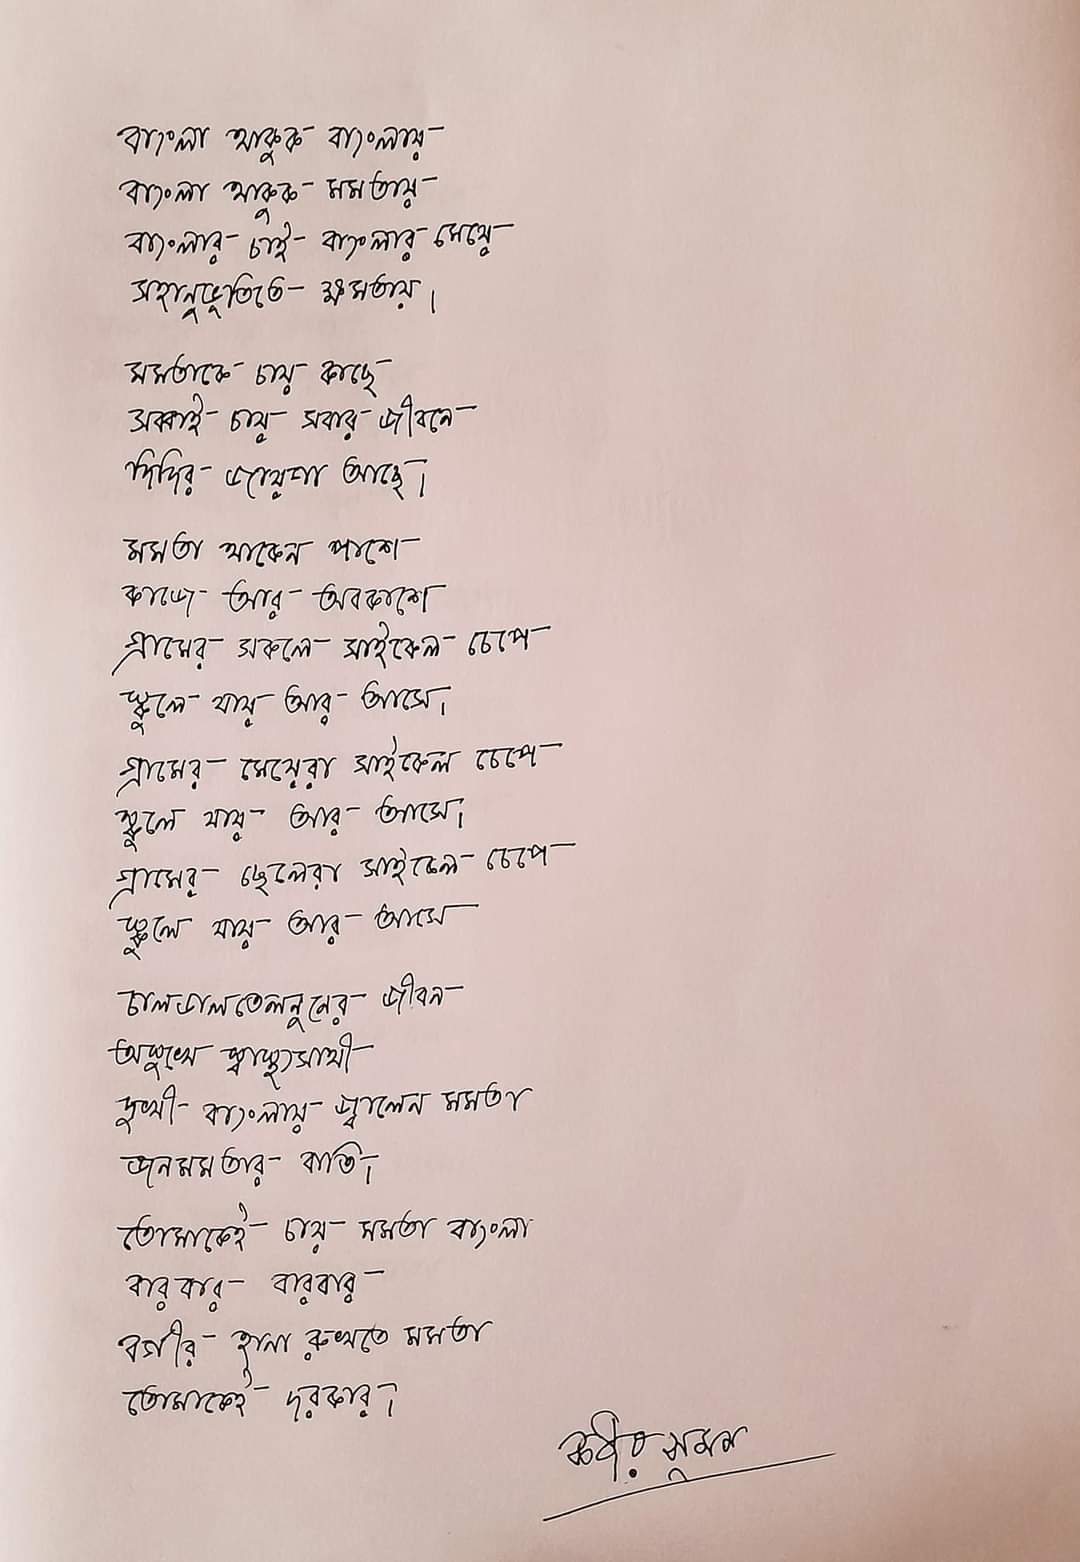 বাংলা থাকুক বাংলায়
বাংলা থাকুক মমতায়
বাংলার চাই বাংলার মেয়ে
সহানুভূতিতে ক্ষমতায়।
মমতাকে চায় কাছে
সব্বাই চায় সবার জীবনে
দিদির জায়গা আছে।
মমতা থাকেন পাশে
কাজে আর অবকাশে
গ্রামের সকলে সাইকেল চেপে
স্কুলে যায় আর আসে।
গ্রামের মেয়েরা সাইকেল চেপে
স্কুলে যায় আর আসে।
গ্রামের ছেলেরা সাইকেল চেপে
স্কুলে যায় আর আসে
চালডালতেলনুনের জীবন
অসুখে স্বাস্থ্যসাথী
দুখী বাংলায় জ্বালেন মমতা
জনমমতার বাতি।
তোমাকেই চায় মমতা বাংলা
বারবার বারবার
বর্গীর হানা রুখতে মমতা
তোমাকেই দরকার।
কবীর সুমন